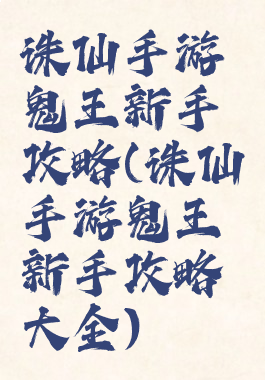 诛仙手游
鬼王新手
攻略(诛仙
手游鬼王
新手攻略
大全)